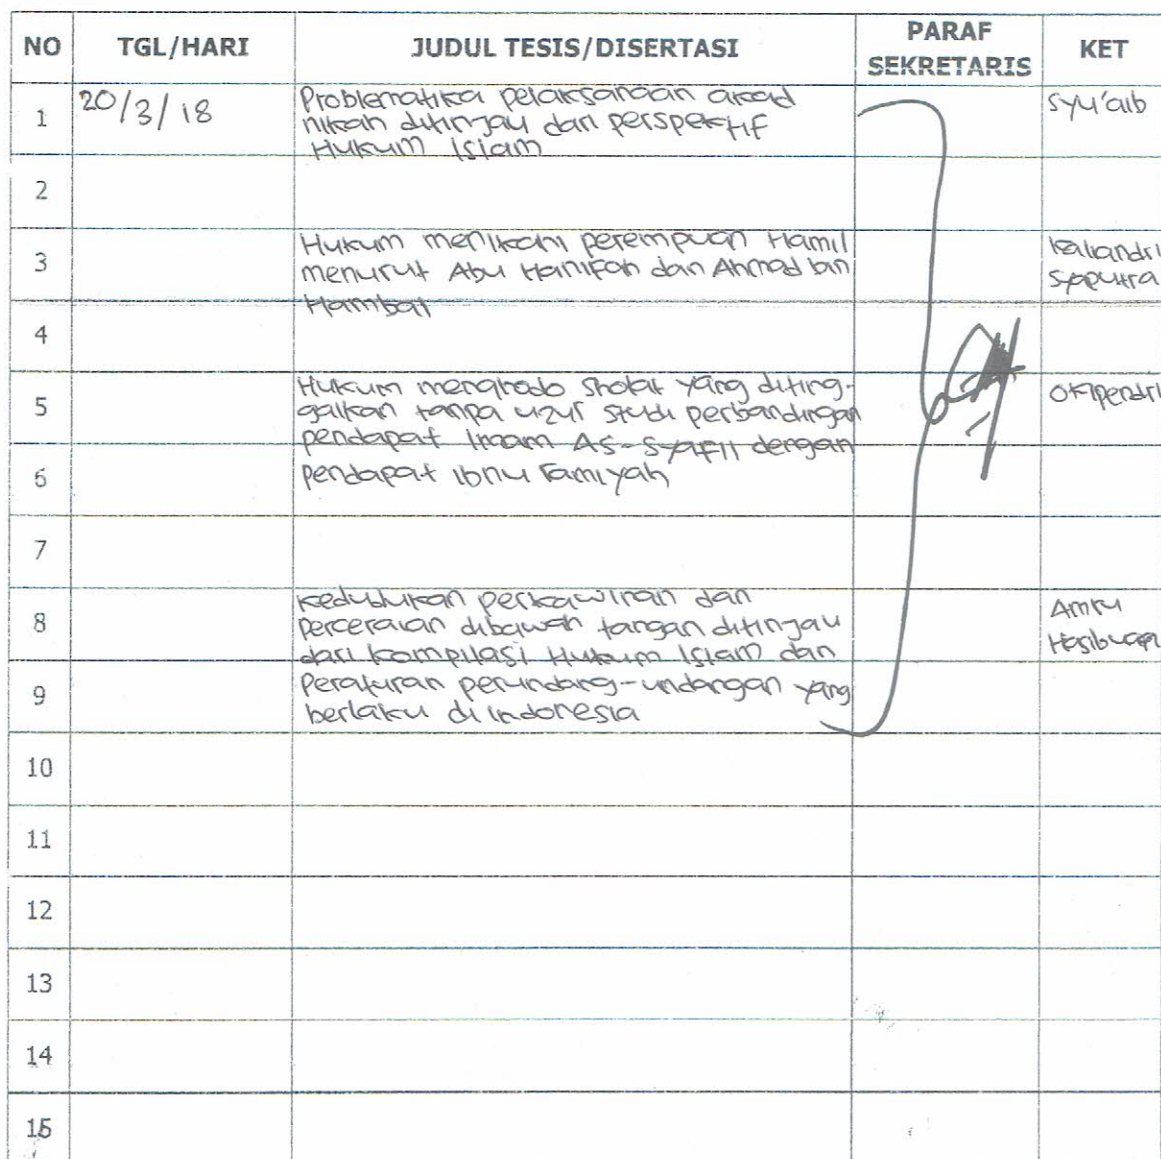 NO TGL/HARI JUDUL TESIS/DISERTASI PARAF SEKRETARIS KET
1 20/3/18 Problematika pelaksanaan akad syu'aib
nikah ditinjau dari perspektif
Hukum Islam
2
Hukum menikahi perempuan Hamil Kaliandri
3 menurut Abu Hanifah dan Ahmad bin Syaputra
Hambal
4
Hukum menghodo sholat yang diting-
5 galkan tanpa uzur studi perbandingan Okipendri
pendapat Imam AS-Syafii dengan
6 pendapat ibnu Tamiyah
7
Kedudukan perkawinan dan Amru
8 perceraian dibawah tangan ditinjau Hasibuan
dari kompilasi Hukum Islam dan
9 Peraturan perundang-undangan yang
berlaku di indonesia
10
11
12
13
14
15